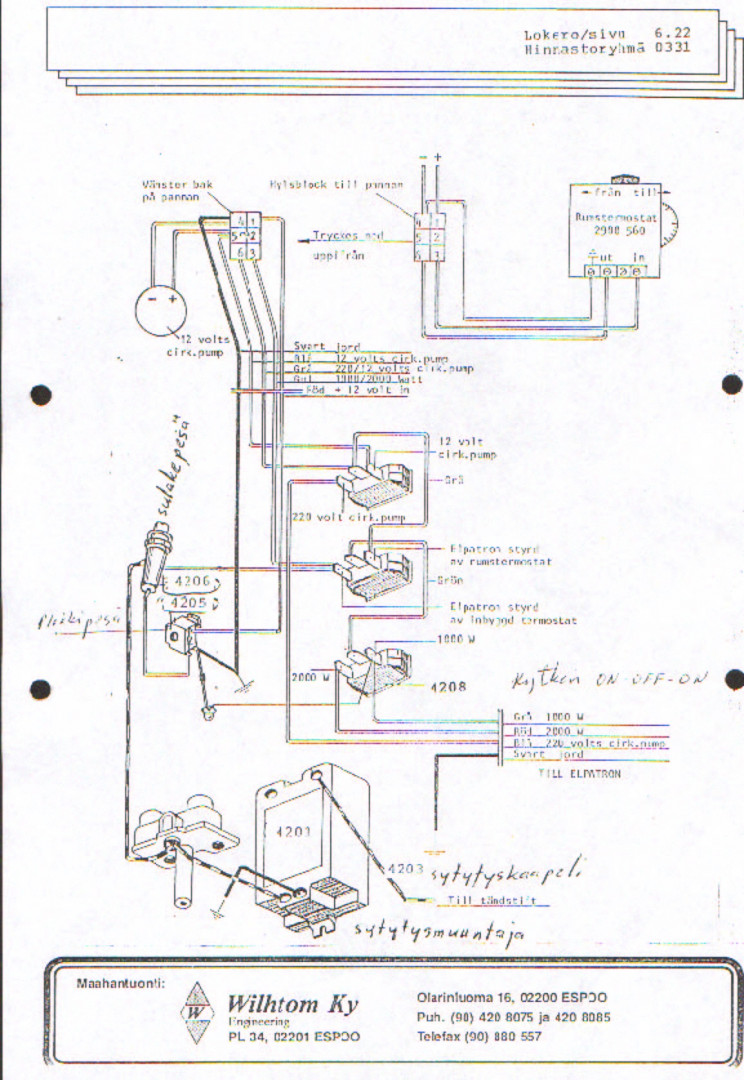 Lokero/sivu 6.22
Hinnastoryhmä 0331
Vänster bak
på pannan
Hylsblock till pannan
- +
4 1
5 2
6 3
4 1
5 2
6 3
Tryckes ned
uppifrån
från till
Rumstermostat
2900 560
ut in
- +
12 volts
cirk.pump
Svart jord
Blå 12 volts cirk.pump
Grå 220/12 volts cirk.pump
Gul 1000/2000 Watt
Röd + 12 volt in
"sulakepesä"
12 volt
cirk.pump
Grå
220 volt cirk.pump
Elpatron styrd
av rumstermostat
Grön
4206
4205
Elpatron styrd
av inbyggd termostat
1000 W
2000 W
4208
Kytkin ON-OFF-ON
Grå 1000 W
Röd 2000 W
Blå 220 volts cirk.pump
Svart jord
TILL ELPATRON
4201
4203 sytytyskaapeli
Till tändstift
sytytysmuuntaja
Maahantuonti:
W
Wilhtom Ky
Engineering
PL 34, 02201 ESPOO
Olarinluoma 16, 02200 ESPOO
Puh. (90) 420 8075 ja 420 8085
Telefax (90) 880 557